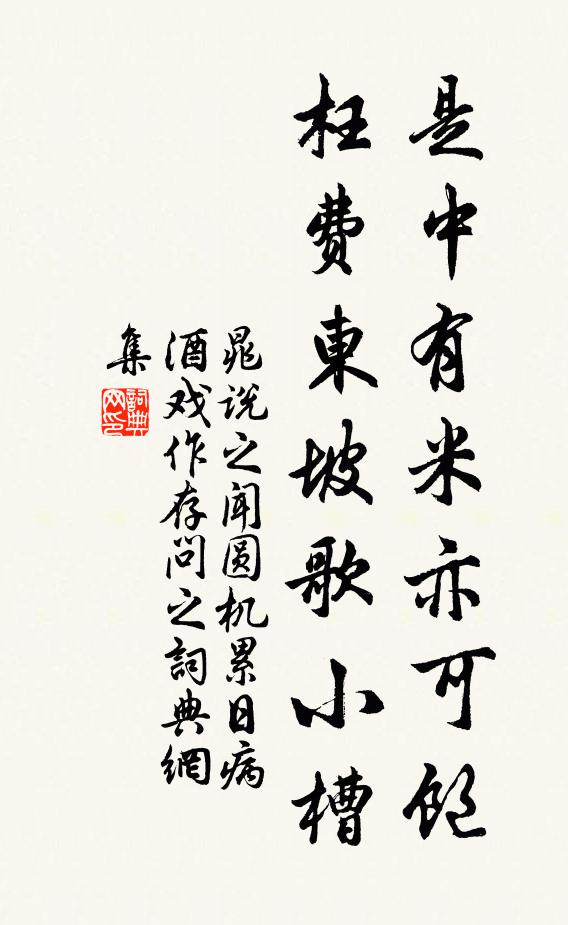 是中有米亦可飽
枉費東坡歌小槽
晁说之闻圆机累日病
酒戏作存问之詞典網
集
詞典
网印